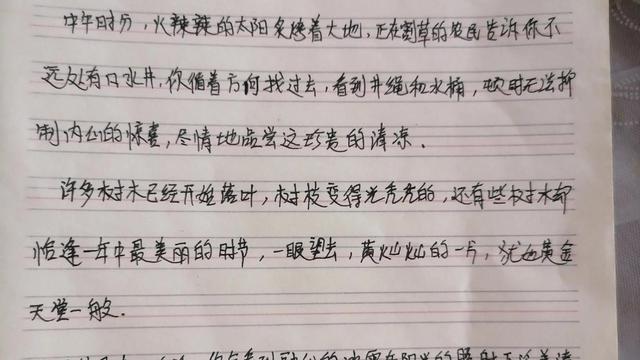 中午时分，火辣辣的太阳炙烤着大地，正在割草的农民告诉你不
远处有口水井，你循着方向找过去，看到井绳和水桶，顿时无法抑
制内心的惊喜，尽情地品尝这珍贵的清凉．
许多树木已经开始落叶，树枝变得光秃秃的，还有些树木却
恰逢一年中最美丽的时节，一眼望去，黄灿灿的一片，犹如黄金
天堂一般．